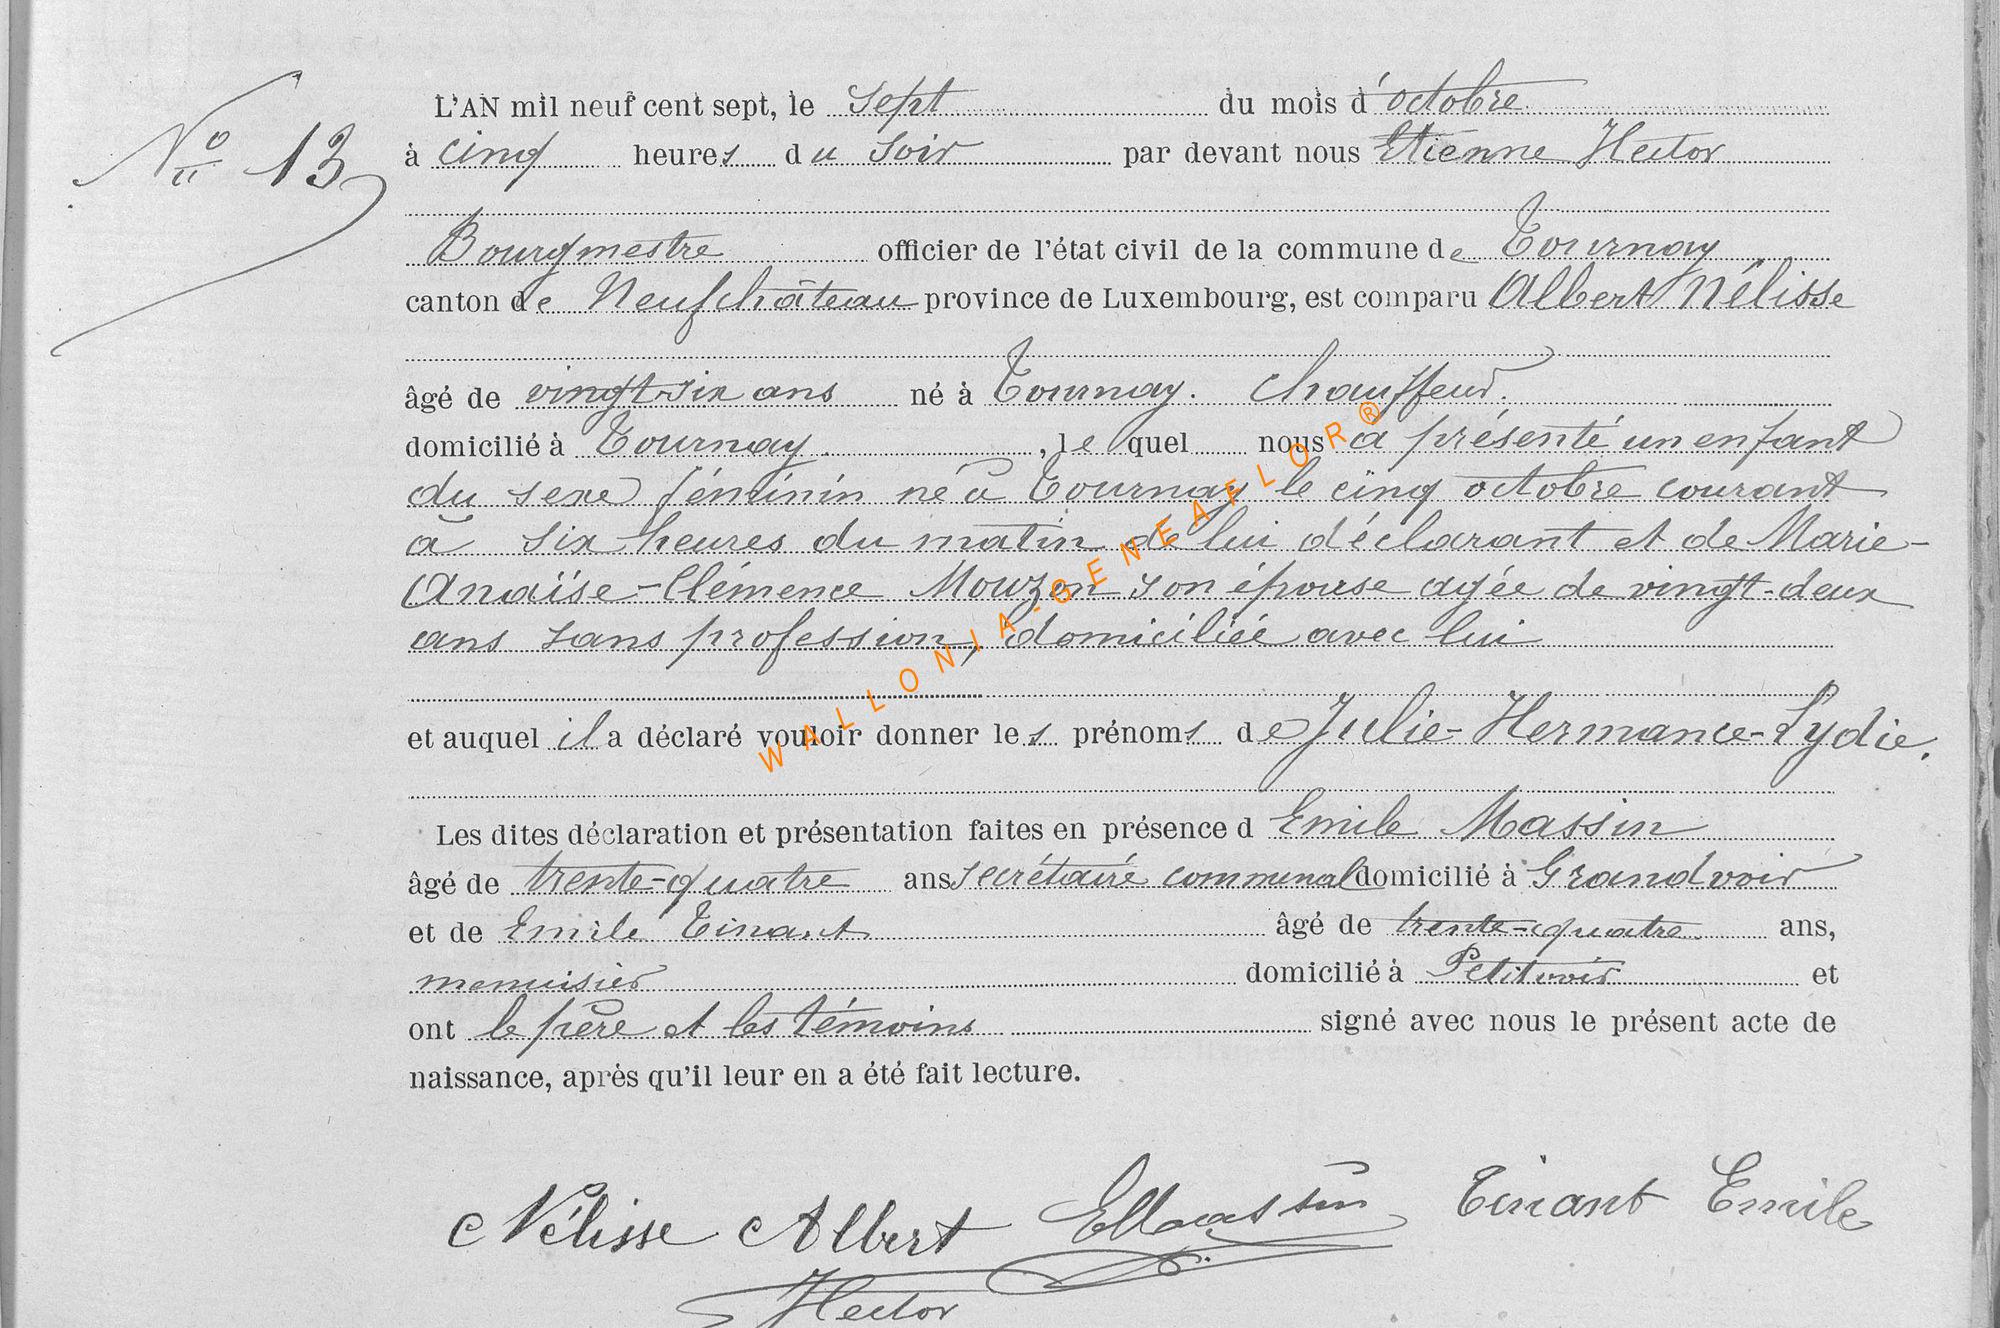 No 13
L'AN mil neuf cent sept, le sept du mois d'octobre
à cinq heures du soir par devant nous Etienne Hector
Bourgmestre officier de l'état civil de la commune de Tournay
canton de Neufchâteau province de Luxembourg, est comparu Albert Nélisse
âgé de vingt-six ans né à Tournay. Chauffeur.
domicilié à Tournay. , le quel nous a présenté un enfant
du sexe féminin né à Tournay le cinq octobre courant
à six heures du matin de lui déclarant et de Marie-
Anaïse-Clémence Mouzon son épouse agée de vingt-deux
ans sans profession, domiciliée avec lui
et auquel il a déclaré vouloir donner les prénoms de Julie-Hermance-Lydie.
Les dites déclaration et présentation faites en présence d Emile Massin
âgé de trente-quatre ans secrétaire communal domicilié à Grandvoir
et de Emile Tinant âgé de trente-quatre ans,
menuisier domicilié à Petitvoir et
ont le père et les témoins signé avec nous le présent acte de
naissance, après qu'il leur en a été fait lecture.
Nélisse Albert EMassin Tinant Emile
Hector
WALLONIA-GENEAFLOR®